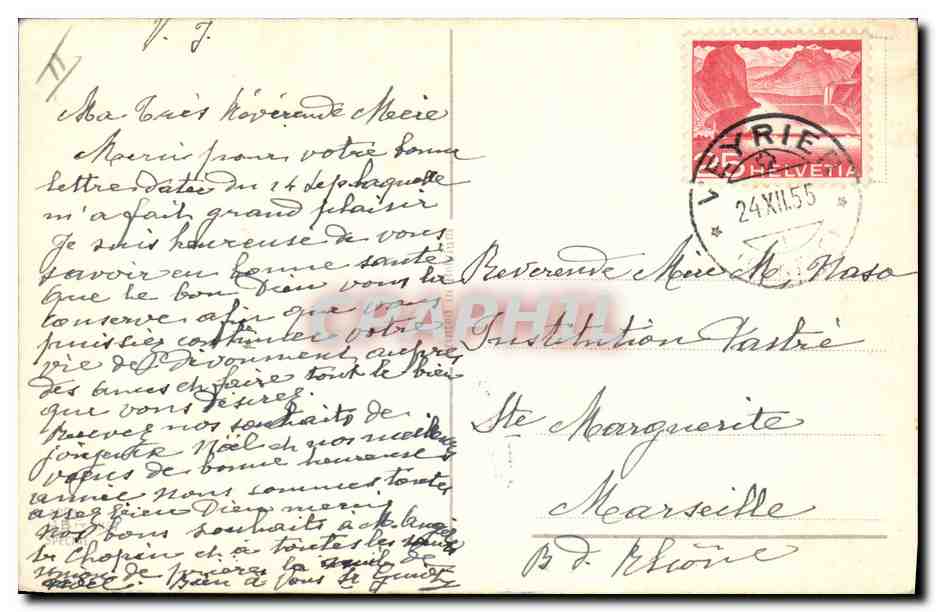 V. J.
Ma très Révérende Mère
Merci pour votre bonne
lettre datée du 24 Sep laquelle
m'a fait grand plaisir
Je suis heureuse de vous
savoir en bonne santé
que le bon Dieu vous la
conserve afin que vous
puissiez continuer votre
vie de devoument auprès
des âmes et faire tout le bien
que vous désirez.
Recevez nos souhaits de
Noël et nos meilleurs
voeux de bonne heureuse
année nous sommes toutes
assez bien Dieu merci
nos bons souhaits à M.
Chopin et à toutes les
de prières la de
Bien à vous Sr
25 HELVETIA
VEYRIER
24 XII.55
Reverende Mère M. Naso
Institution Vastré
Ste Marguerite
Marseille
B d. Rhône
CPAPHIL